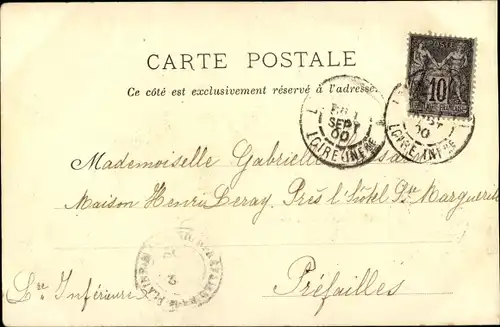 CARTE POSTALE
Ce côté est exclusivement réservé à l'adresse
POSTE
10
SEPT
00
LOIRE INFRE
00
LOIRE INFRE
Mademoiselle Gabrielle
Maison Henri Leray Près l'hôtel Ste Marguerite
Lre Inférieure
Préfailles